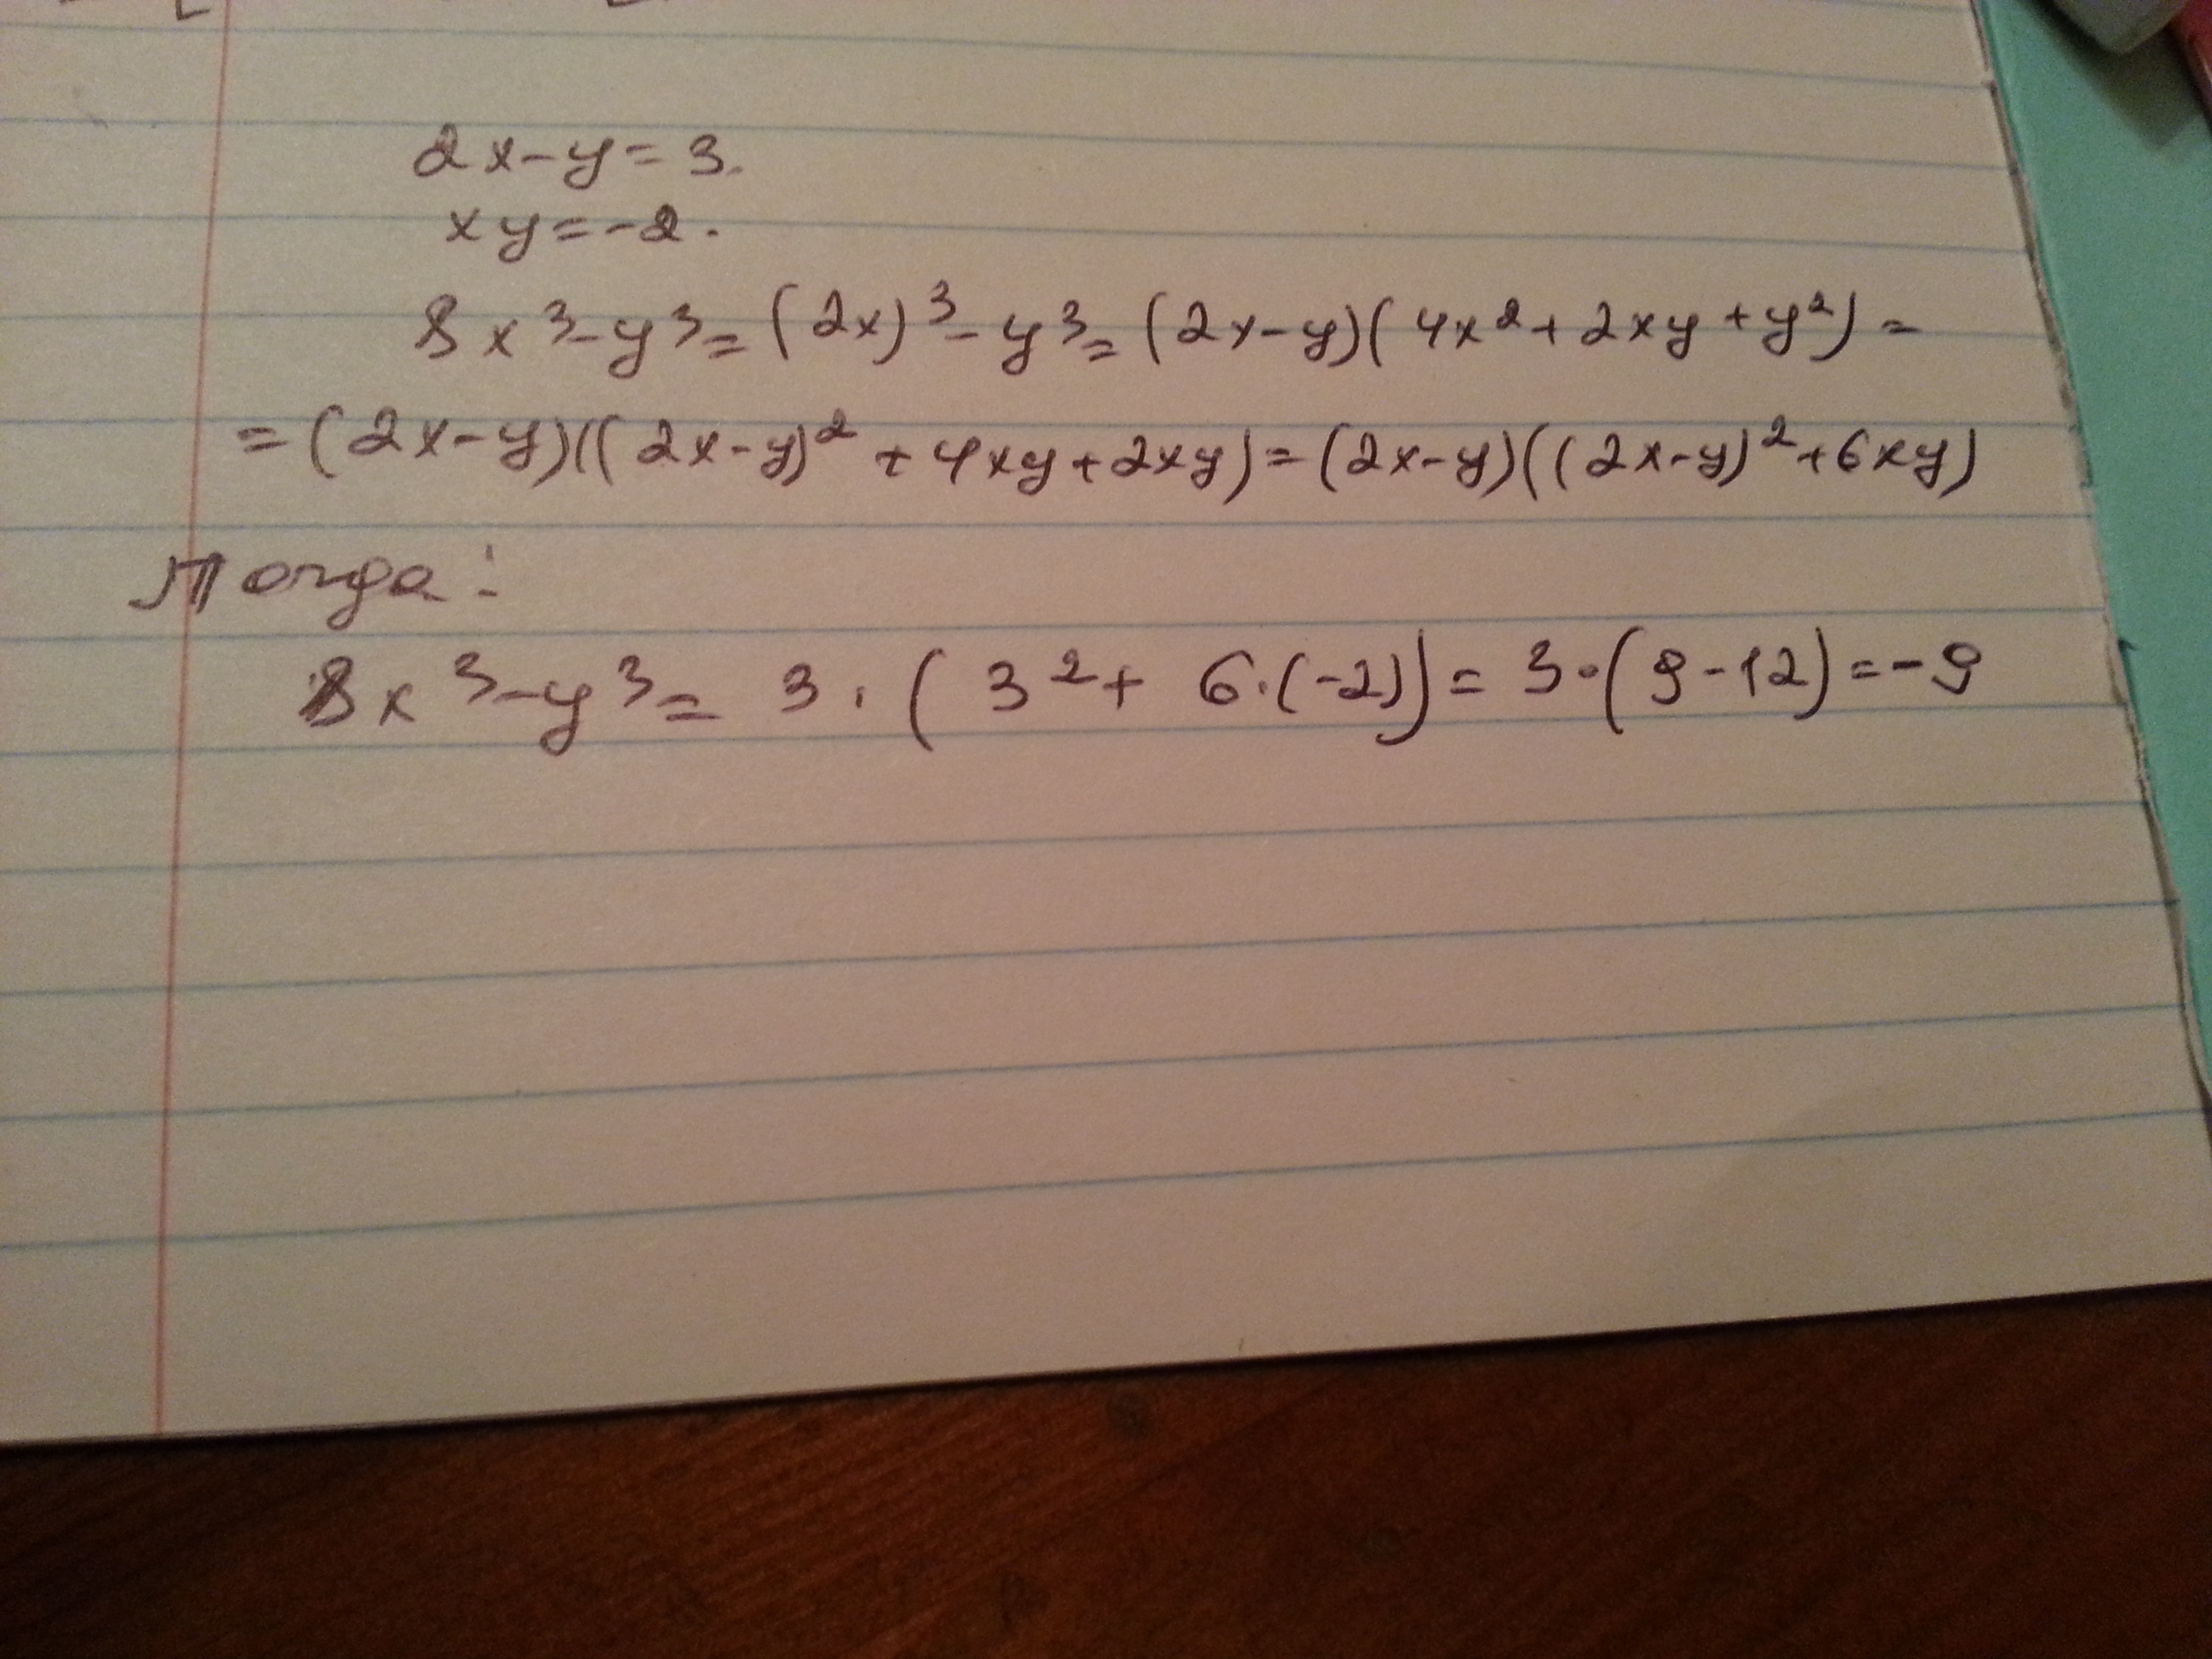 2x-y=3.
xy=-2.
8x³-y³=(2x)³-y³=(2x-y)(4x²+2xy+y²)=
=(2x-y)((2x-y)²+4xy+2xy)=(2x-y)((2x-y)²+6xy)
Тогда:
8x³-y³=3·(3²+6·(-2))=3·(9-12)=-9